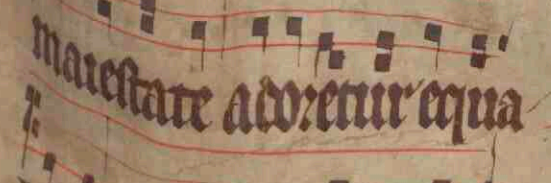 maiestate adoretur equa